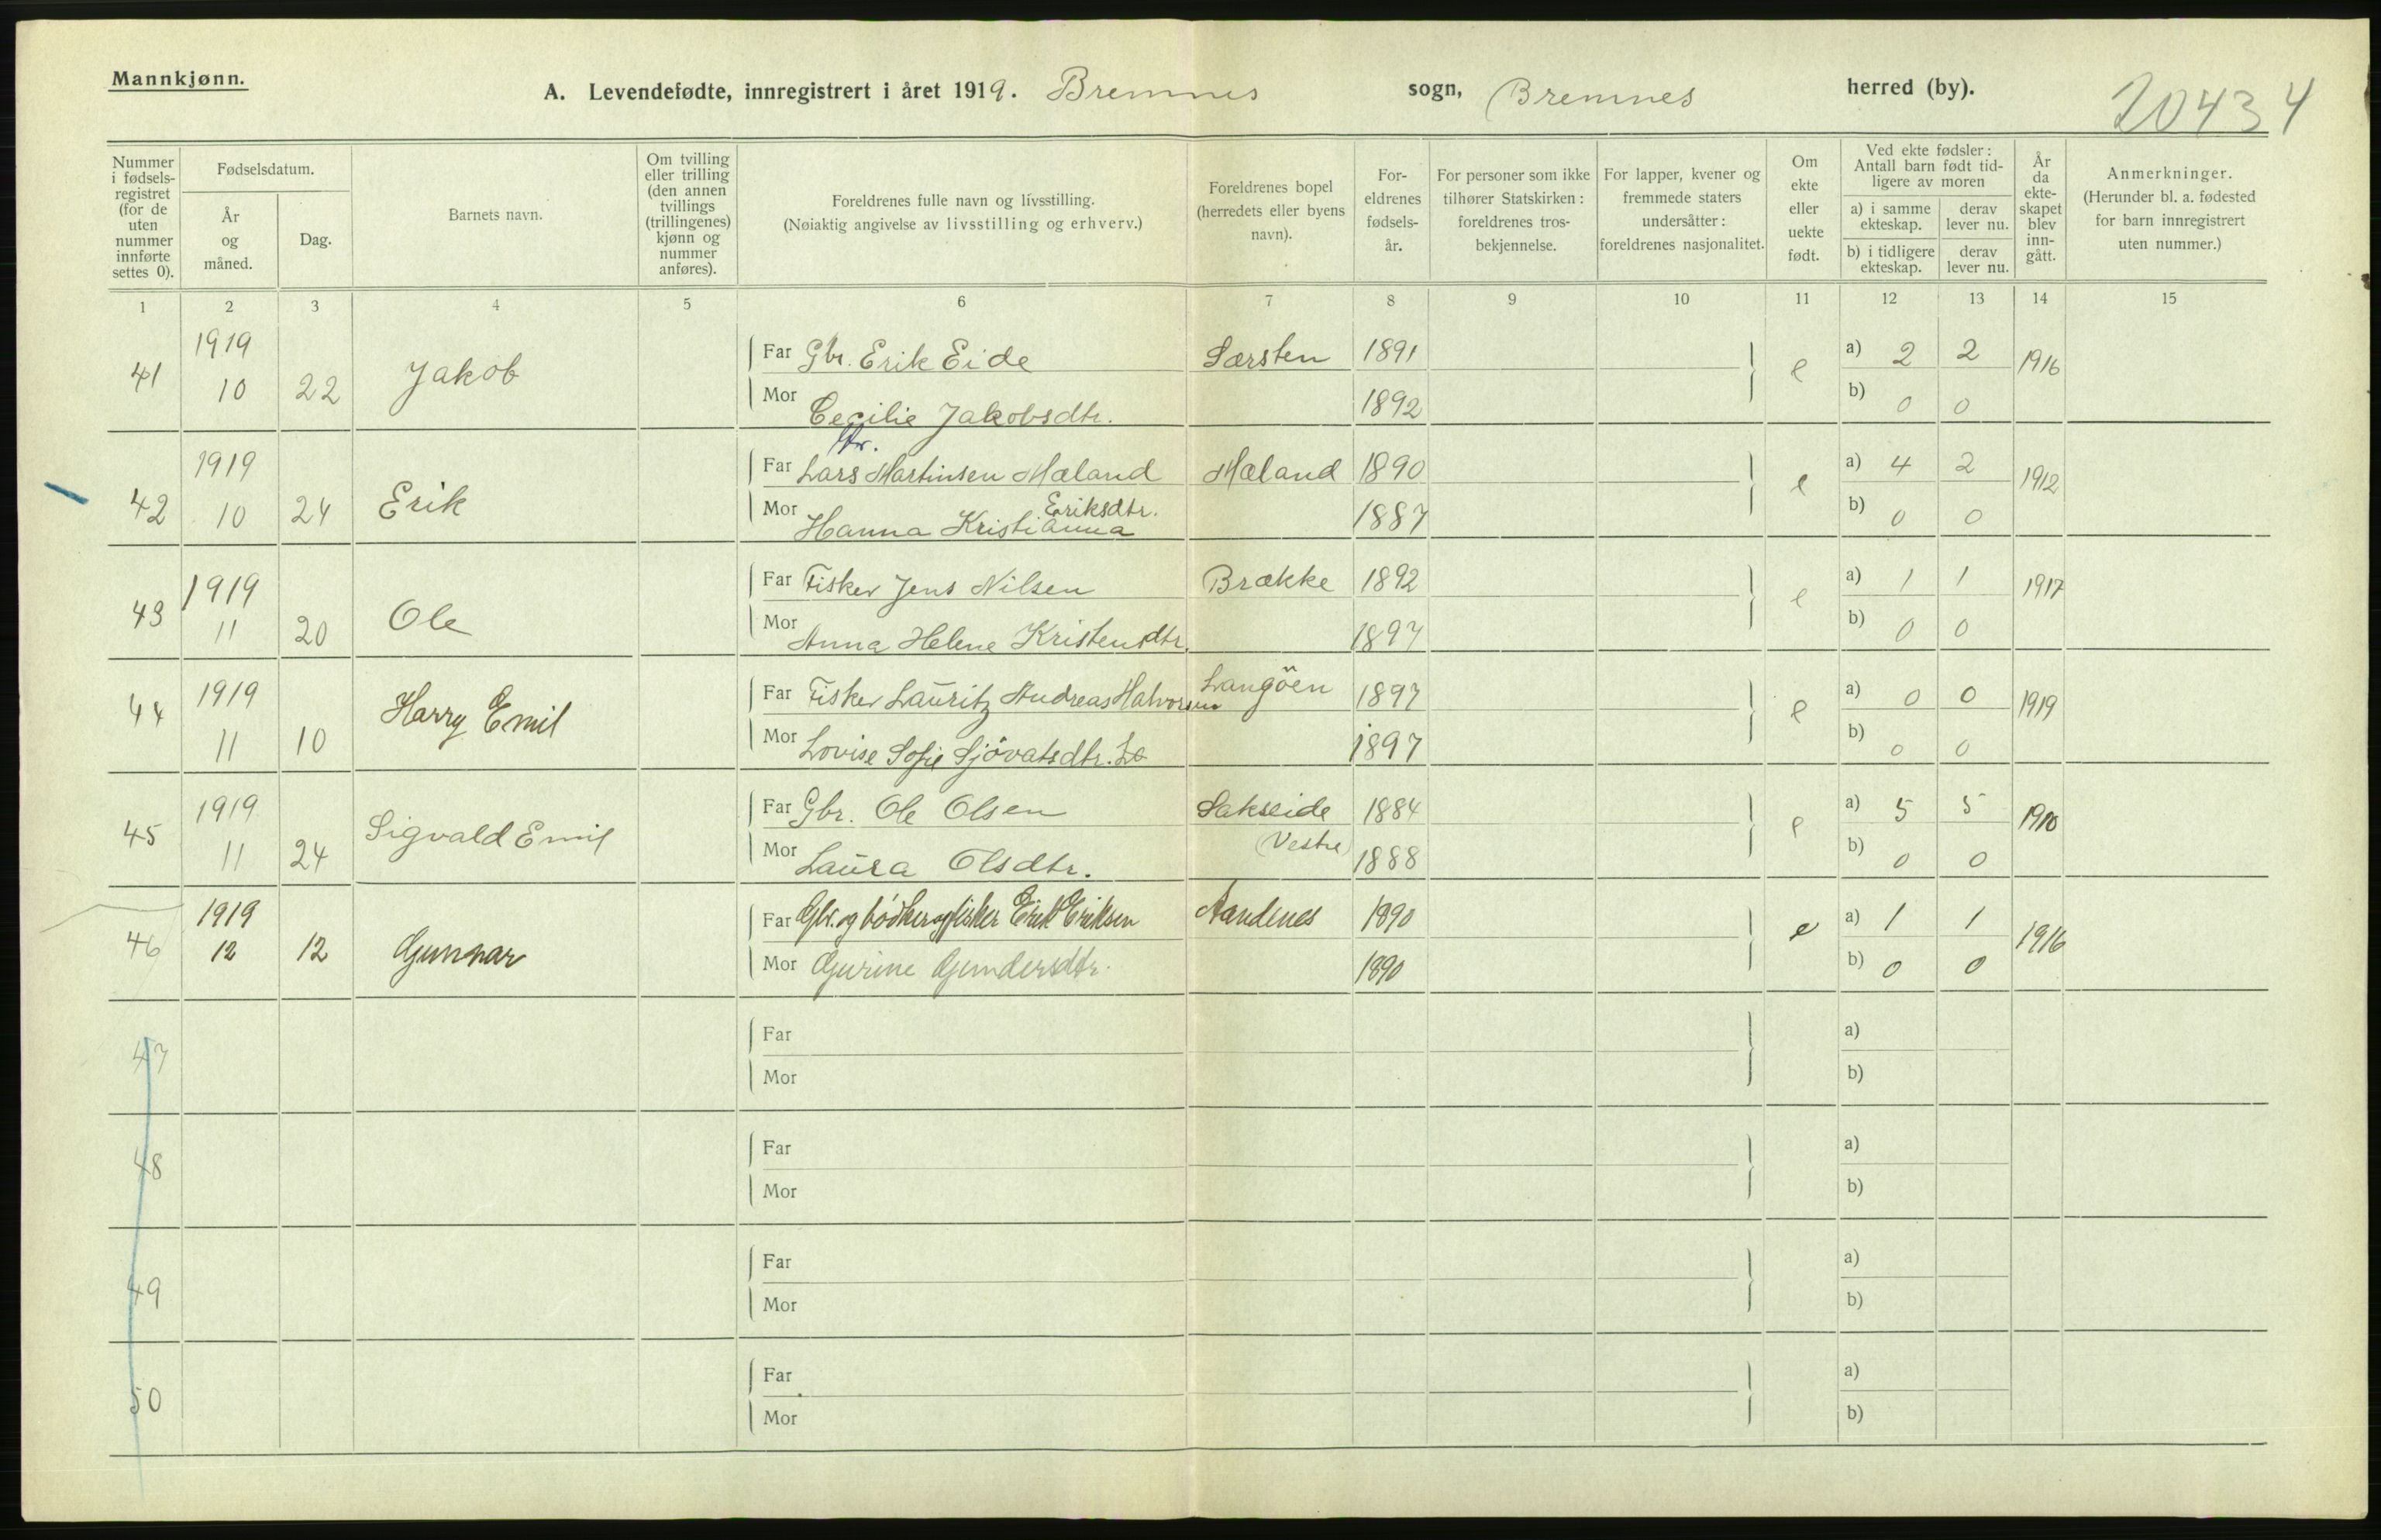 Mannkjønn.
A. Levendefødte, innregistrert i året 1919. Bremnes sogn, Bremnes herred (by).
20434
Nummer i fødsels-registret (for de uten nummer innførte settes 0).
Fødselsdatum.
År og måned.
Dag.
Barnets navn.
Om tvilling eller trilling (den annen tvillings (trillingenes) kjønn og nummer anføres).
Foreldrenes fulle navn og livsstilling.
(Nøiaktig angivelse av livsstilling og erhverv.)
Foreldrenes bopel (herredets eller byens navn).
For-eldrenes fødsels-år.
For personer som ikke tilhører Statskirken: foreldrenes tros-bekjennelse.
For lapper, kvener og fremmede staters undersåtter: foreldrenes nasjonalitet.
Om ekte eller uekte født.
Ved ekte fødsler: Antall barn født tid-ligere av moren
a) i samme ekteskap.
derav lever nu.
b) i tidligere ekteskap.
derav lever nu.
År da ekte-skapet blev inn-gått.
Anmerkninger.
(Herunder bl. a. fødested for barn innregistrert uten nummer.)
1 2 3 4 5 6 7 8 9 10 11 12 13 14 15
41 1919 10 22 Jakob Far Gbr. Erik Eide Særsten 1891 e a) 2 2 1916
Mor Cecilie Jakobsdtr. 1892 b) 0 0
42 1919 10 24 Erik Far Lars Martinsen Mæland Mæland 1890 e a) 4 2 1912
Mor Hanna Kristianna Eriksdtr. 1887 b) 0 0
43 1919 11 20 Ole Far Fisker Jens Nilsen Brække 1892 e a) 1 1 1917
Mor Anna Helene Kristensdtr. 1897 b) 0 0
44 1919 11 10 Harry Emil Far Fisker Lauritz Andreas Halvorsen Langöen 1897 e a) 0 0 1919
Mor Lovise Sofie Sjövatsdtr. 1897 b) 0 0
45 1919 11 24 Sigvald Emil Far Gbr. Ole Olsen Sakseide 1884 e a) 5 5 1910
Mor Laura Olsdtr. (Vestre) 1888 b) 0 0
46 1919 12 12 Gunnar Far Gbr. og bødker og fisker Erik Eriksen Aandenes 1890 e a) 1 1 1916
Mor Gurine Gundersdtr. 1890 b) 0 0
47 Far a)
Mor b)
48 Far a)
Mor b)
49 Far a)
Mor b)
50 Far a)
Mor b)